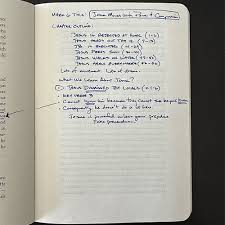 MARK 6 TITLE: JESUS MOVES WITH POWER & COMPASSION
CHAPTER OUTLINE:
JESUS IS REJECTED AT HOME (1-6)
JESUS SENDS OUT THE 12 (7-13)
JB IS BEHEADED (14-29)
JESUS FEEDS 5000 (30-44)
JESUS WALKS ON WATER (45-52)
JESUS HEALS EVERYWHERE (53-56)
LOTS OF MOVEMENT. LOTS OF DRAMA.
WHAT WE LEARN ABOUT JESUS?
① JESUS DISMISSED BY LOCALS (v.1-6)
- KEY VERSE 3
- CANNOT HIM BECAUSE THEY CANNOT SEE BEYOND
- CONSEQUENTLY HE DOESN'T DO A LOT HERE
JESUS IS WHEN YOUR